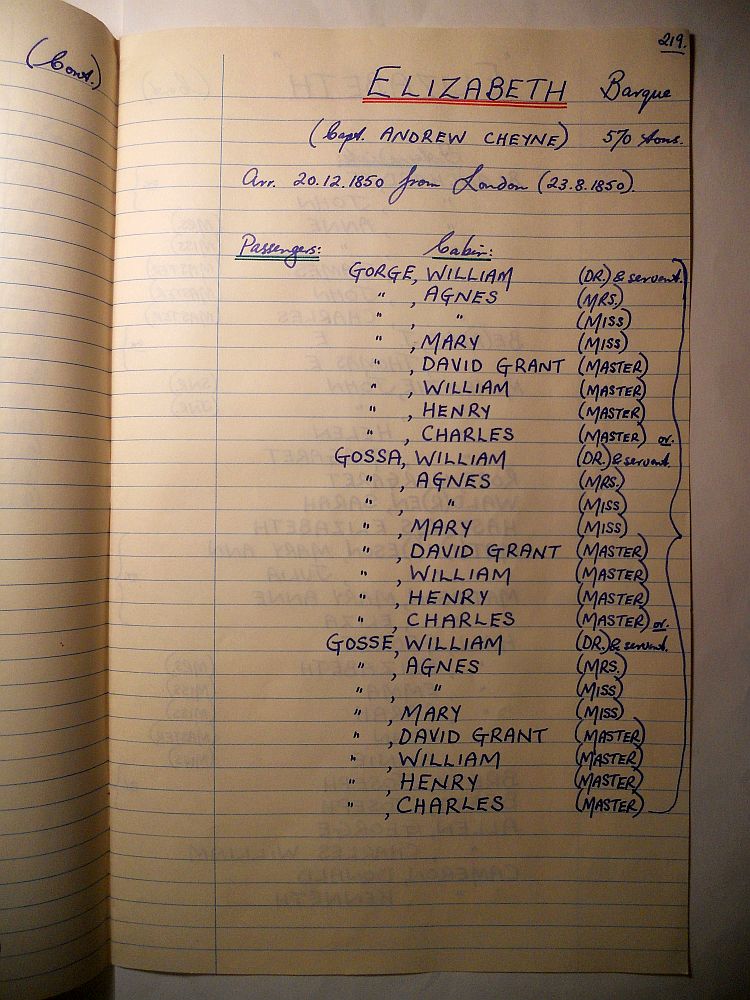 (Cont.)
219.
ELIZABETH Barque
(Capt. ANDREW CHEYNE) 570 tons.
Arr. 20.12.1850 from London (23.8.1850).
Passengers: Cabin:
GORGE, WILLIAM (DR.) & servant.
" , AGNES (MRS.)
" , " (MISS)
" , MARY (MISS)
" , DAVID GRANT (MASTER)
" , WILLIAM (MASTER)
" , HENRY (MASTER)
" , CHARLES (MASTER) or.
GOSSA, WILLIAM (DR.) & servant.
" , AGNES (MRS.)
" , " (MISS)
" , MARY (MISS)
" , DAVID GRANT (MASTER)
" , WILLIAM (MASTER)
" , HENRY (MASTER)
" , CHARLES (MASTER) or.
GOSSE, WILLIAM (DR.) & servant.
" , AGNES (MRS.)
" , " (MISS)
" , MARY (MISS)
" , DAVID GRANT (MASTER)
" , WILLIAM (MASTER)
" , HENRY (MASTER)
" , CHARLES (MASTER)